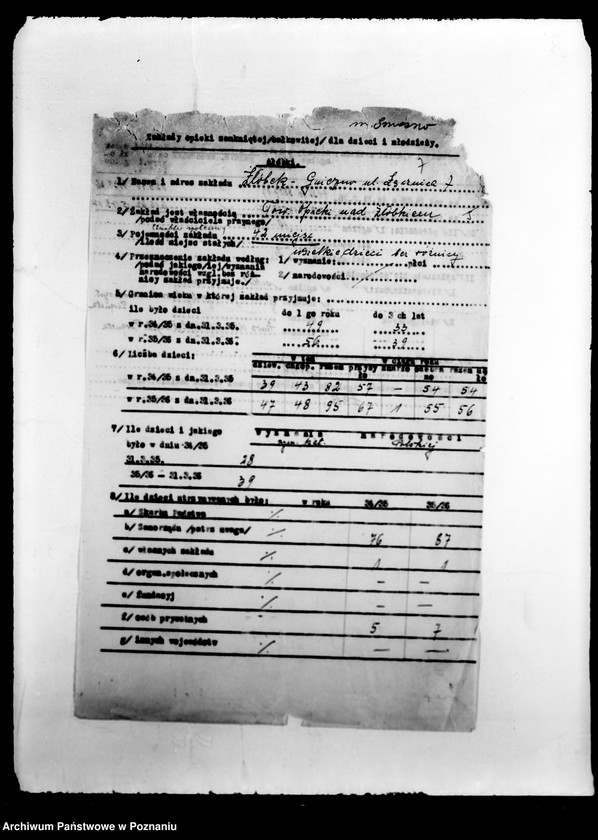 Zakłady opieki zamkniętej/całkowitej/ dla dzieci i młodzieży.
Żłóbki.
7
1/ Nazwa i adres zakładu Żłóbek - Gniezno ul. 7
2/ Zakład jest własnością Tow. Opieki nad Żłóbkiem
/podać właściciela prawnego/
3/ Pojemność zakładu : 43 miejsc
/ilość miejsc stałych/
4/ Przeznaczenie zakładu według: 1/ wyznanie: płci
/podać jakiego/jej/wyznania
narodowości wzgl. bez róż- 2/ narodowości.
nicy zakład przyjmuje./
5/ Granica wieku w której zakład przyjmuje:
ile było dzieci do 1 go roku do 3 ch lat
w r.34/35 z dn.31.3.35. 49 33
w r.35/36 z dn.31.3.36: 56 39
6/ liczba dzieci: w tem w ciągu roku
dziew. chłop. razem przyby ło zmarło razem
w r.34/35 z dn.31.3.35 39 43 82 57 — 54 54
w r.35/36 z dn.31.3.36 47 48 95 67 1 55 56
7/ Ile dzieci i jakiego wyznania narodowości
było w dniu 34/35 rzym. kat. Polskiej
31.3.35. 28
35/36 - 31.3.36 39
8/ Ile dzieci utrzymywanych było: w roku 34/35 35/36
a/ Skarbu Państwa %
b/ Samorządu /patrz uwaga/ % 76 87
c/ własnych zakładu % 1 1
d/ organ.społecznych % — —
e/ fundacyj % — —
f/ osób prywatnych 5 7
g/ innych województw % — —
Archiwum Państwowe w Poznaniu